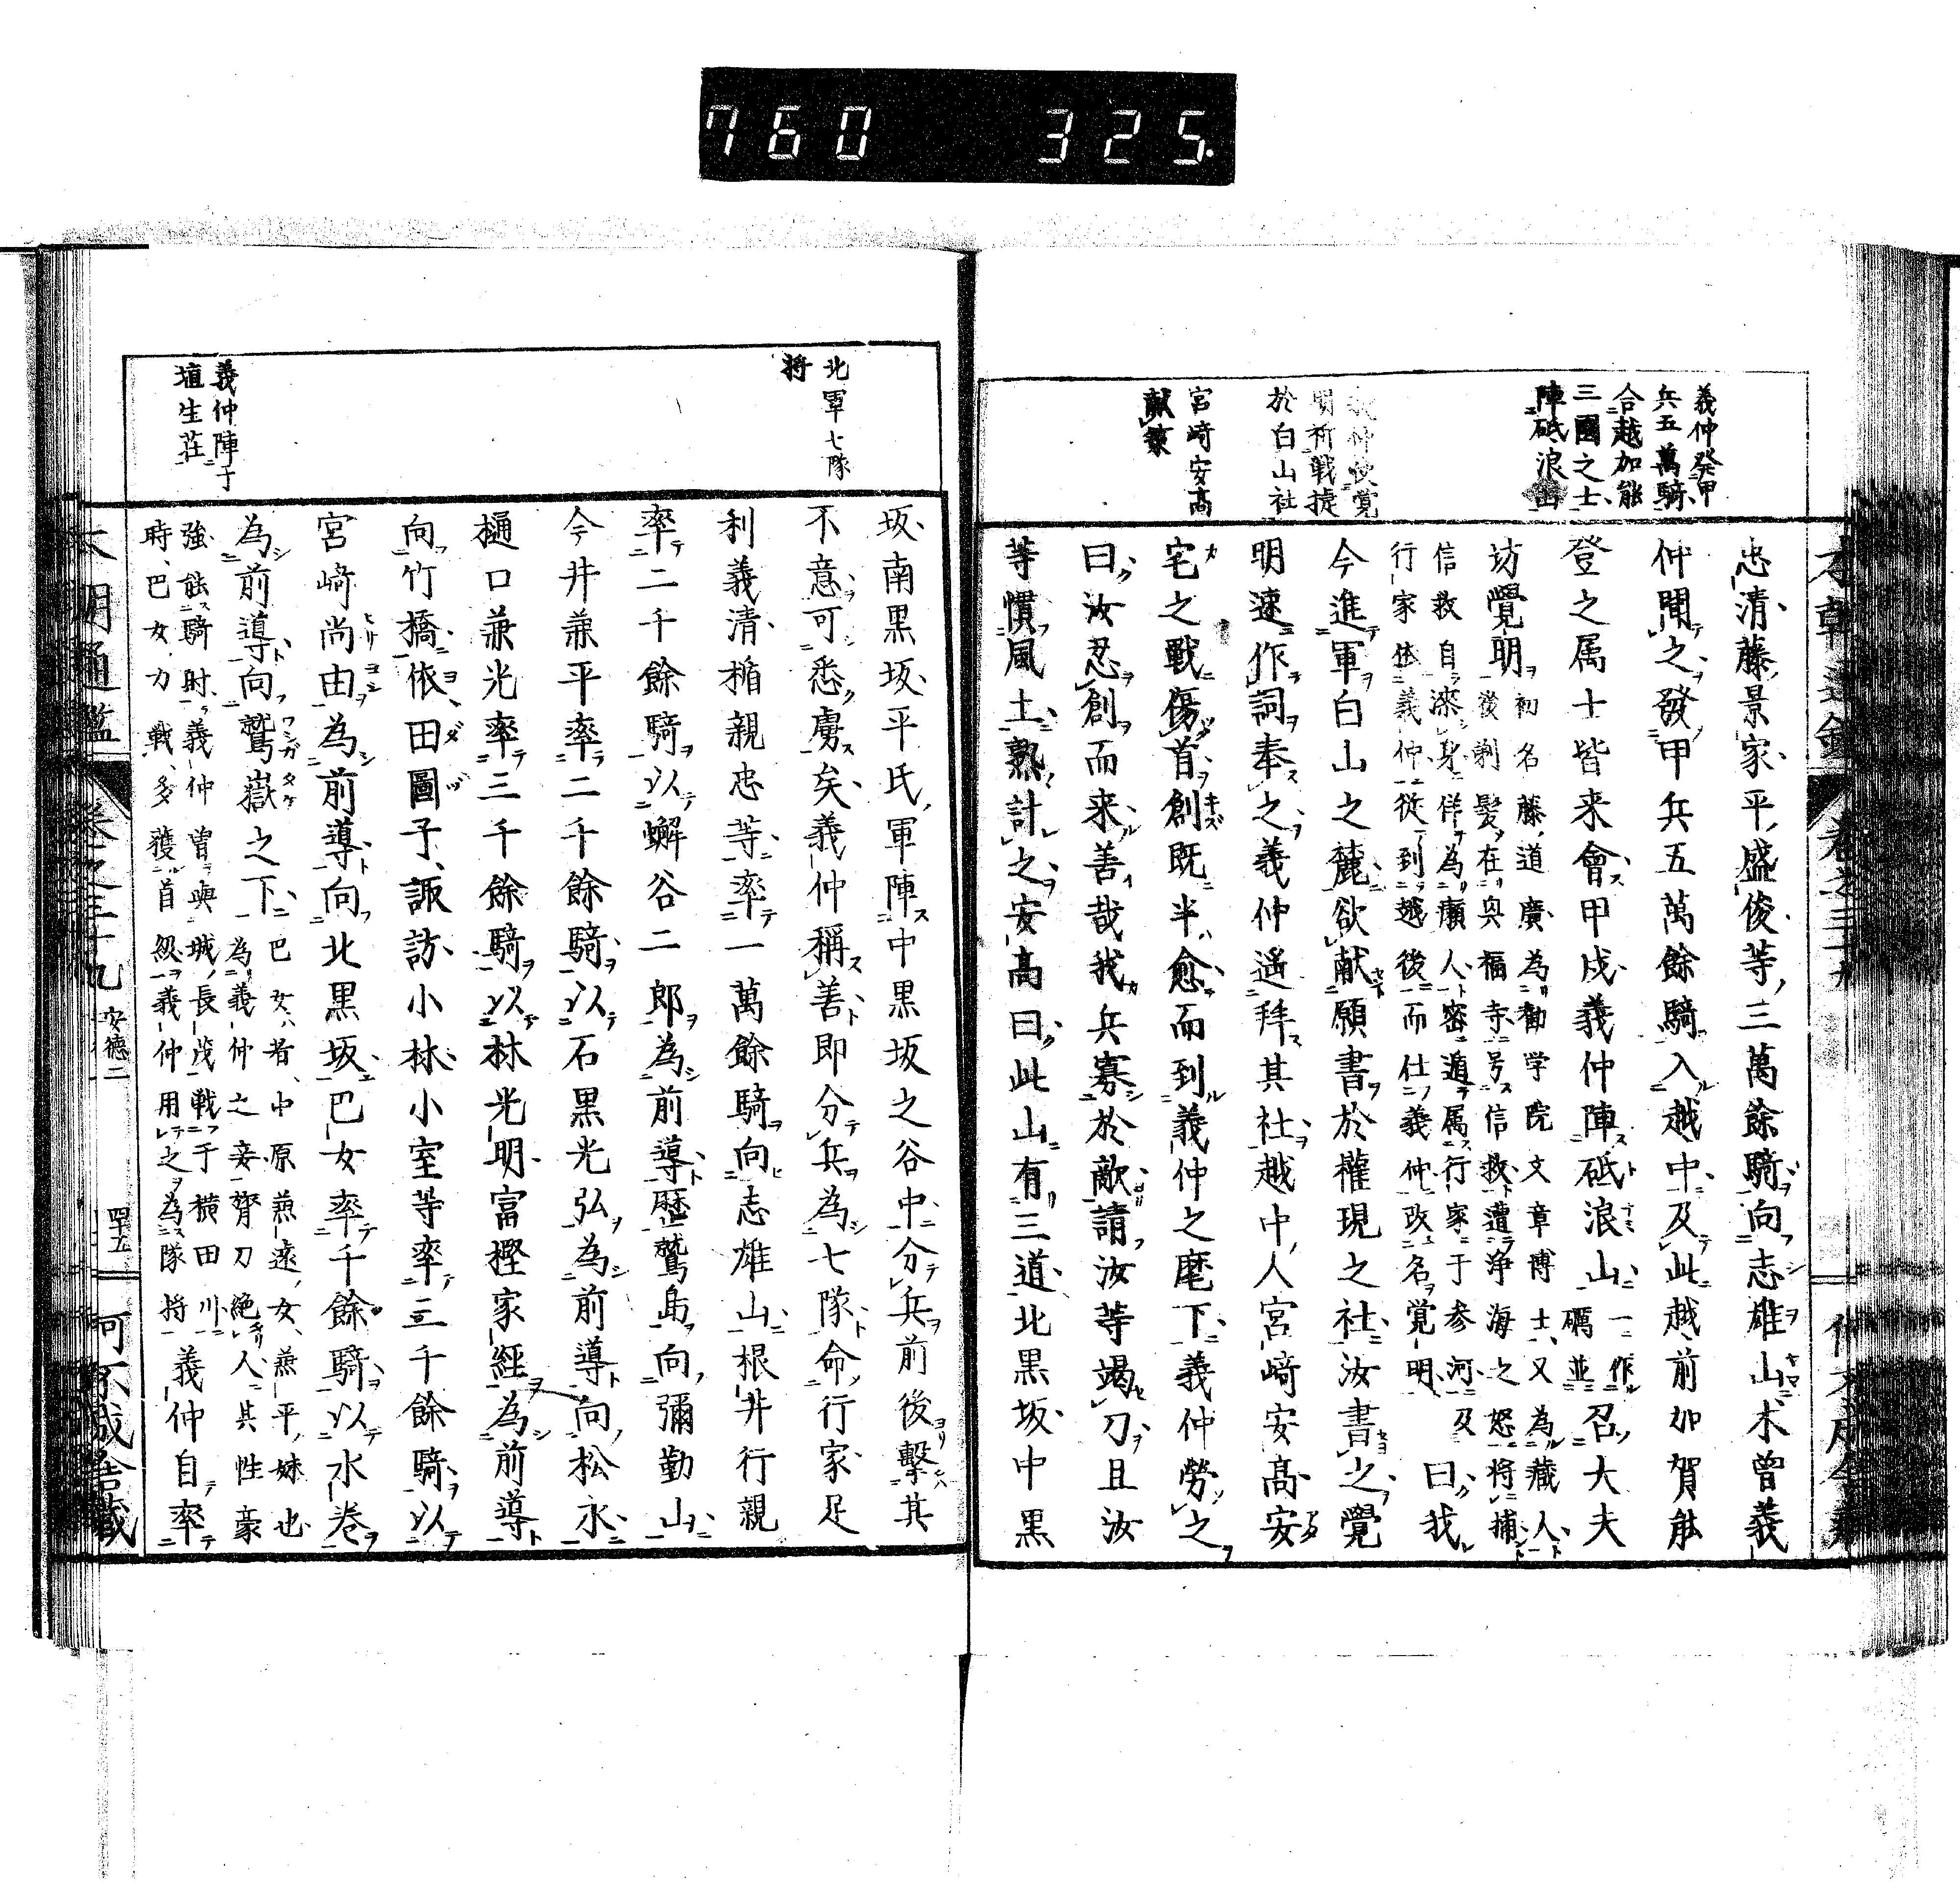 760 325.
義仲発甲
兵五萬騎
合越加能
三國之士
陣砥浪山
義仲使覚
明祈戦捷
於白山社
宮崎安高
献策
忠清藤景家平盛俊等三萬餘騎向志雄山木曾義
仲聞之發甲兵五萬餘騎入越中及此越前加賀能
登之属士皆来會甲戌義仲陣砥浪山一作礪並召大夫
坊覺明初名藤道廣為勧学院文章博士又為藏人
後剃髪在興福寺号信救遭浄海之怒将捕
信救自漆身佯為癩人密遁属行家于参河及
行家依義仲従到越後而仕義仲改名覚明曰我
今進軍白山之麓欲献願書於權現之社汝書之覺
明速作詞奉之義仲遥拜其社越中人宮崎安高安
宅之戰傷首創既半愈而到義仲之麾下義仲勞之
曰汝忍創而来善哉我兵寡於敵請汝等竭刀且汝
等慣風土熟計之安高曰此山有三道北黒坂中黒
北軍七隊
将
義仲陣于
埴生荘
坂南黒坂平氏軍陣中黒坂之谷中分兵前後擊其
不意可悉虜矣義仲稱善即分兵為七隊命行家足
利義清楯親忠等率一萬餘騎向志雄山根井行親
率二千餘騎以蠏谷二郎為前導歴鷲島向彌勤山
今井兼平率二千餘騎以石黒光弘為前導向松永
樋口兼光率三千餘騎以林光明富樫家経為前導
向竹橋依田圖子諏訪小林小室等率三千餘騎以
宮崎尚由為前導向北黒坂巴女率千餘騎以水巻
為前導向鷲嶽之下巴女者中原兼遠女兼平妹也
為義仲之妾膂刀絶人其性豪
強能騎射義仲曾與城長茂戦于横田川
時巴女力戰多獲首級義仲用之為隊将義仲自率
本朝通鑑 卷之三十九 安德二 四十五